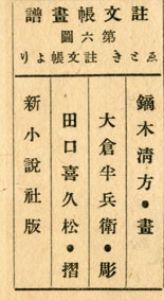 註文帳畫譜
第六圖
ゑとき 註文帳より
鏑木清方・畫
大倉半兵衛・彫
田口喜久松・摺
新小說社版